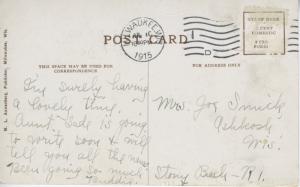 MILWAUKEE, WIS.
1915
D
POST CARD
PLACE STAMP HERE
DOMESTIC
ONE CENT
FOREIGN
THIS SPACE MAY BE USED FOR
CORRESPONDENCE
FOR ADDRESS ONLY
Milwaukee, Wis.
I'm surely having
a lovely time.
Aunt is going
to write soon & will
tell you all the news
Been going so much
Mrs. Joy Smith
Oshkosh
Wis.
Stony Beach - R.1.